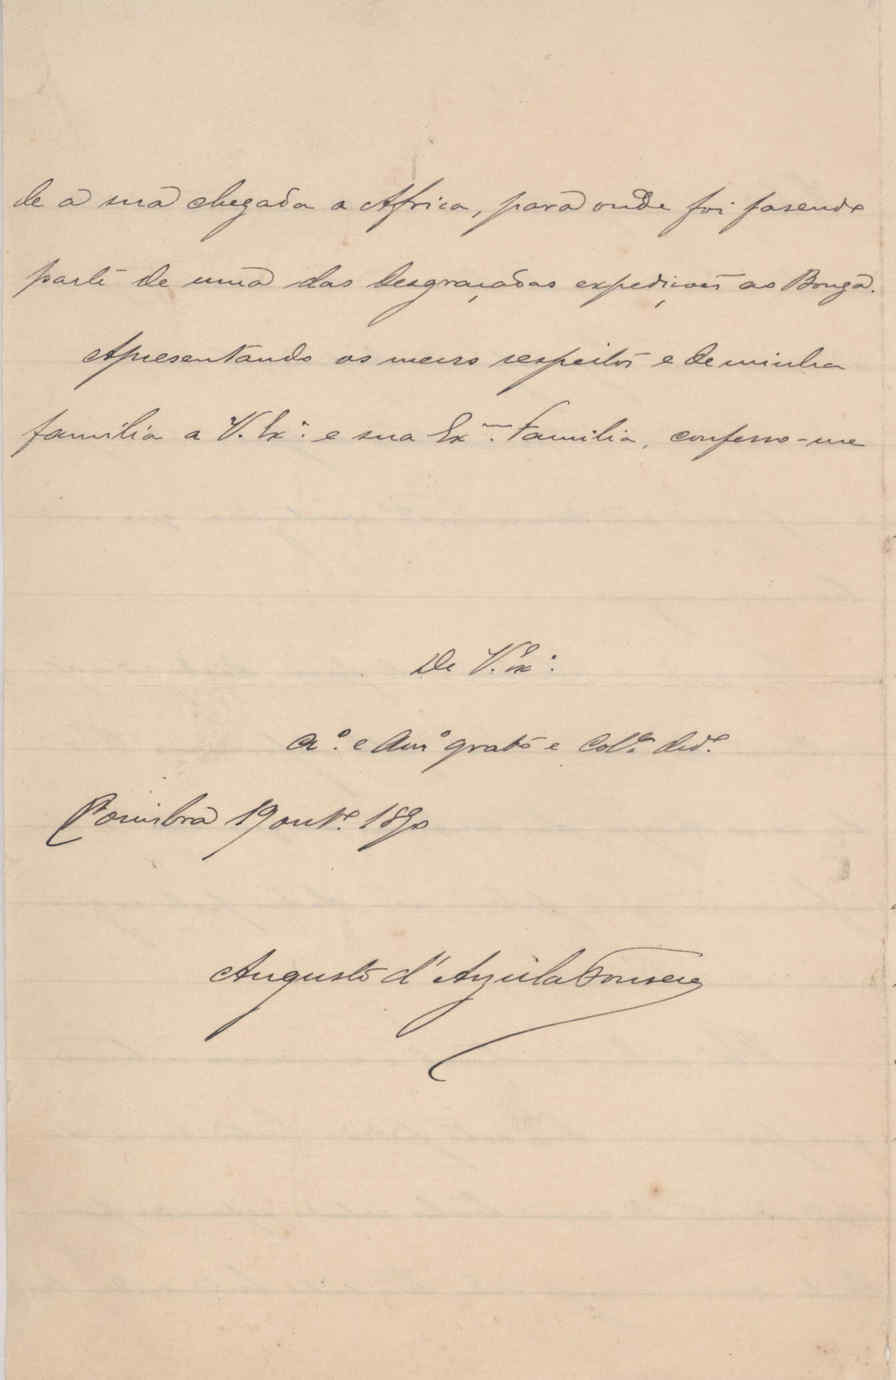 de a sua chegada a Africa, para onde foi fasendo
parte de uma das desgraçadas expedições ao Bonga.
Apresentando os meus respeitos e de minha
familia a V. Exª. e sua Exmª. Familia, confesso-me
De V. Exª.
Aº. e Amº grato e Colª. dedº.
Coimbra 19 outº. 1890
Augusto d'Arzila Fonseca